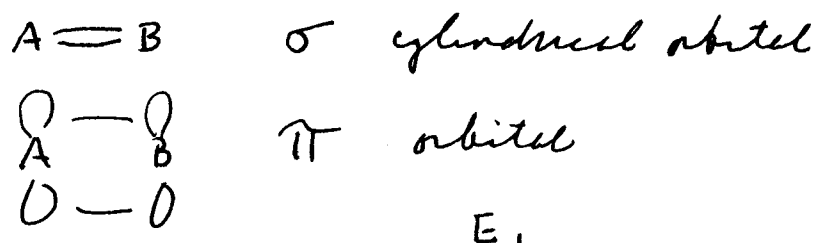 A = B σ cylindrical orbital
A B π orbital
E